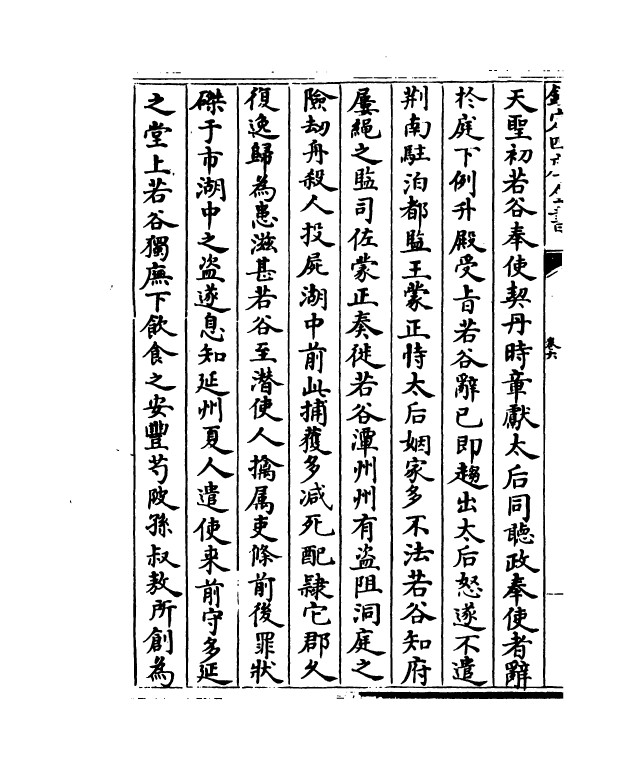 天聖初若谷奉使契丹時章獻太后同聽政奉使者辭
於庭下例升殿受㫖若谷辭已即趨出太后怒遂不遣
荆南駐泊都監王蒙正恃太后姻家多不法若谷知府
屢繩之監司佐蒙正奏徙若谷潭州州有盜阻洞庭之
險劫舟殺人投屍湖中前此捕獲多減死配隸它郡久
復逸歸為患滋甚若谷至潛使人擒属吏條前後罪狀
磔于市湖中之盜遂息知延州夏人遣使来前守多延
之堂上若谷獨廡下飲食之安豐芍陂孫叔敖所創為
欽定四庫全書
卷六